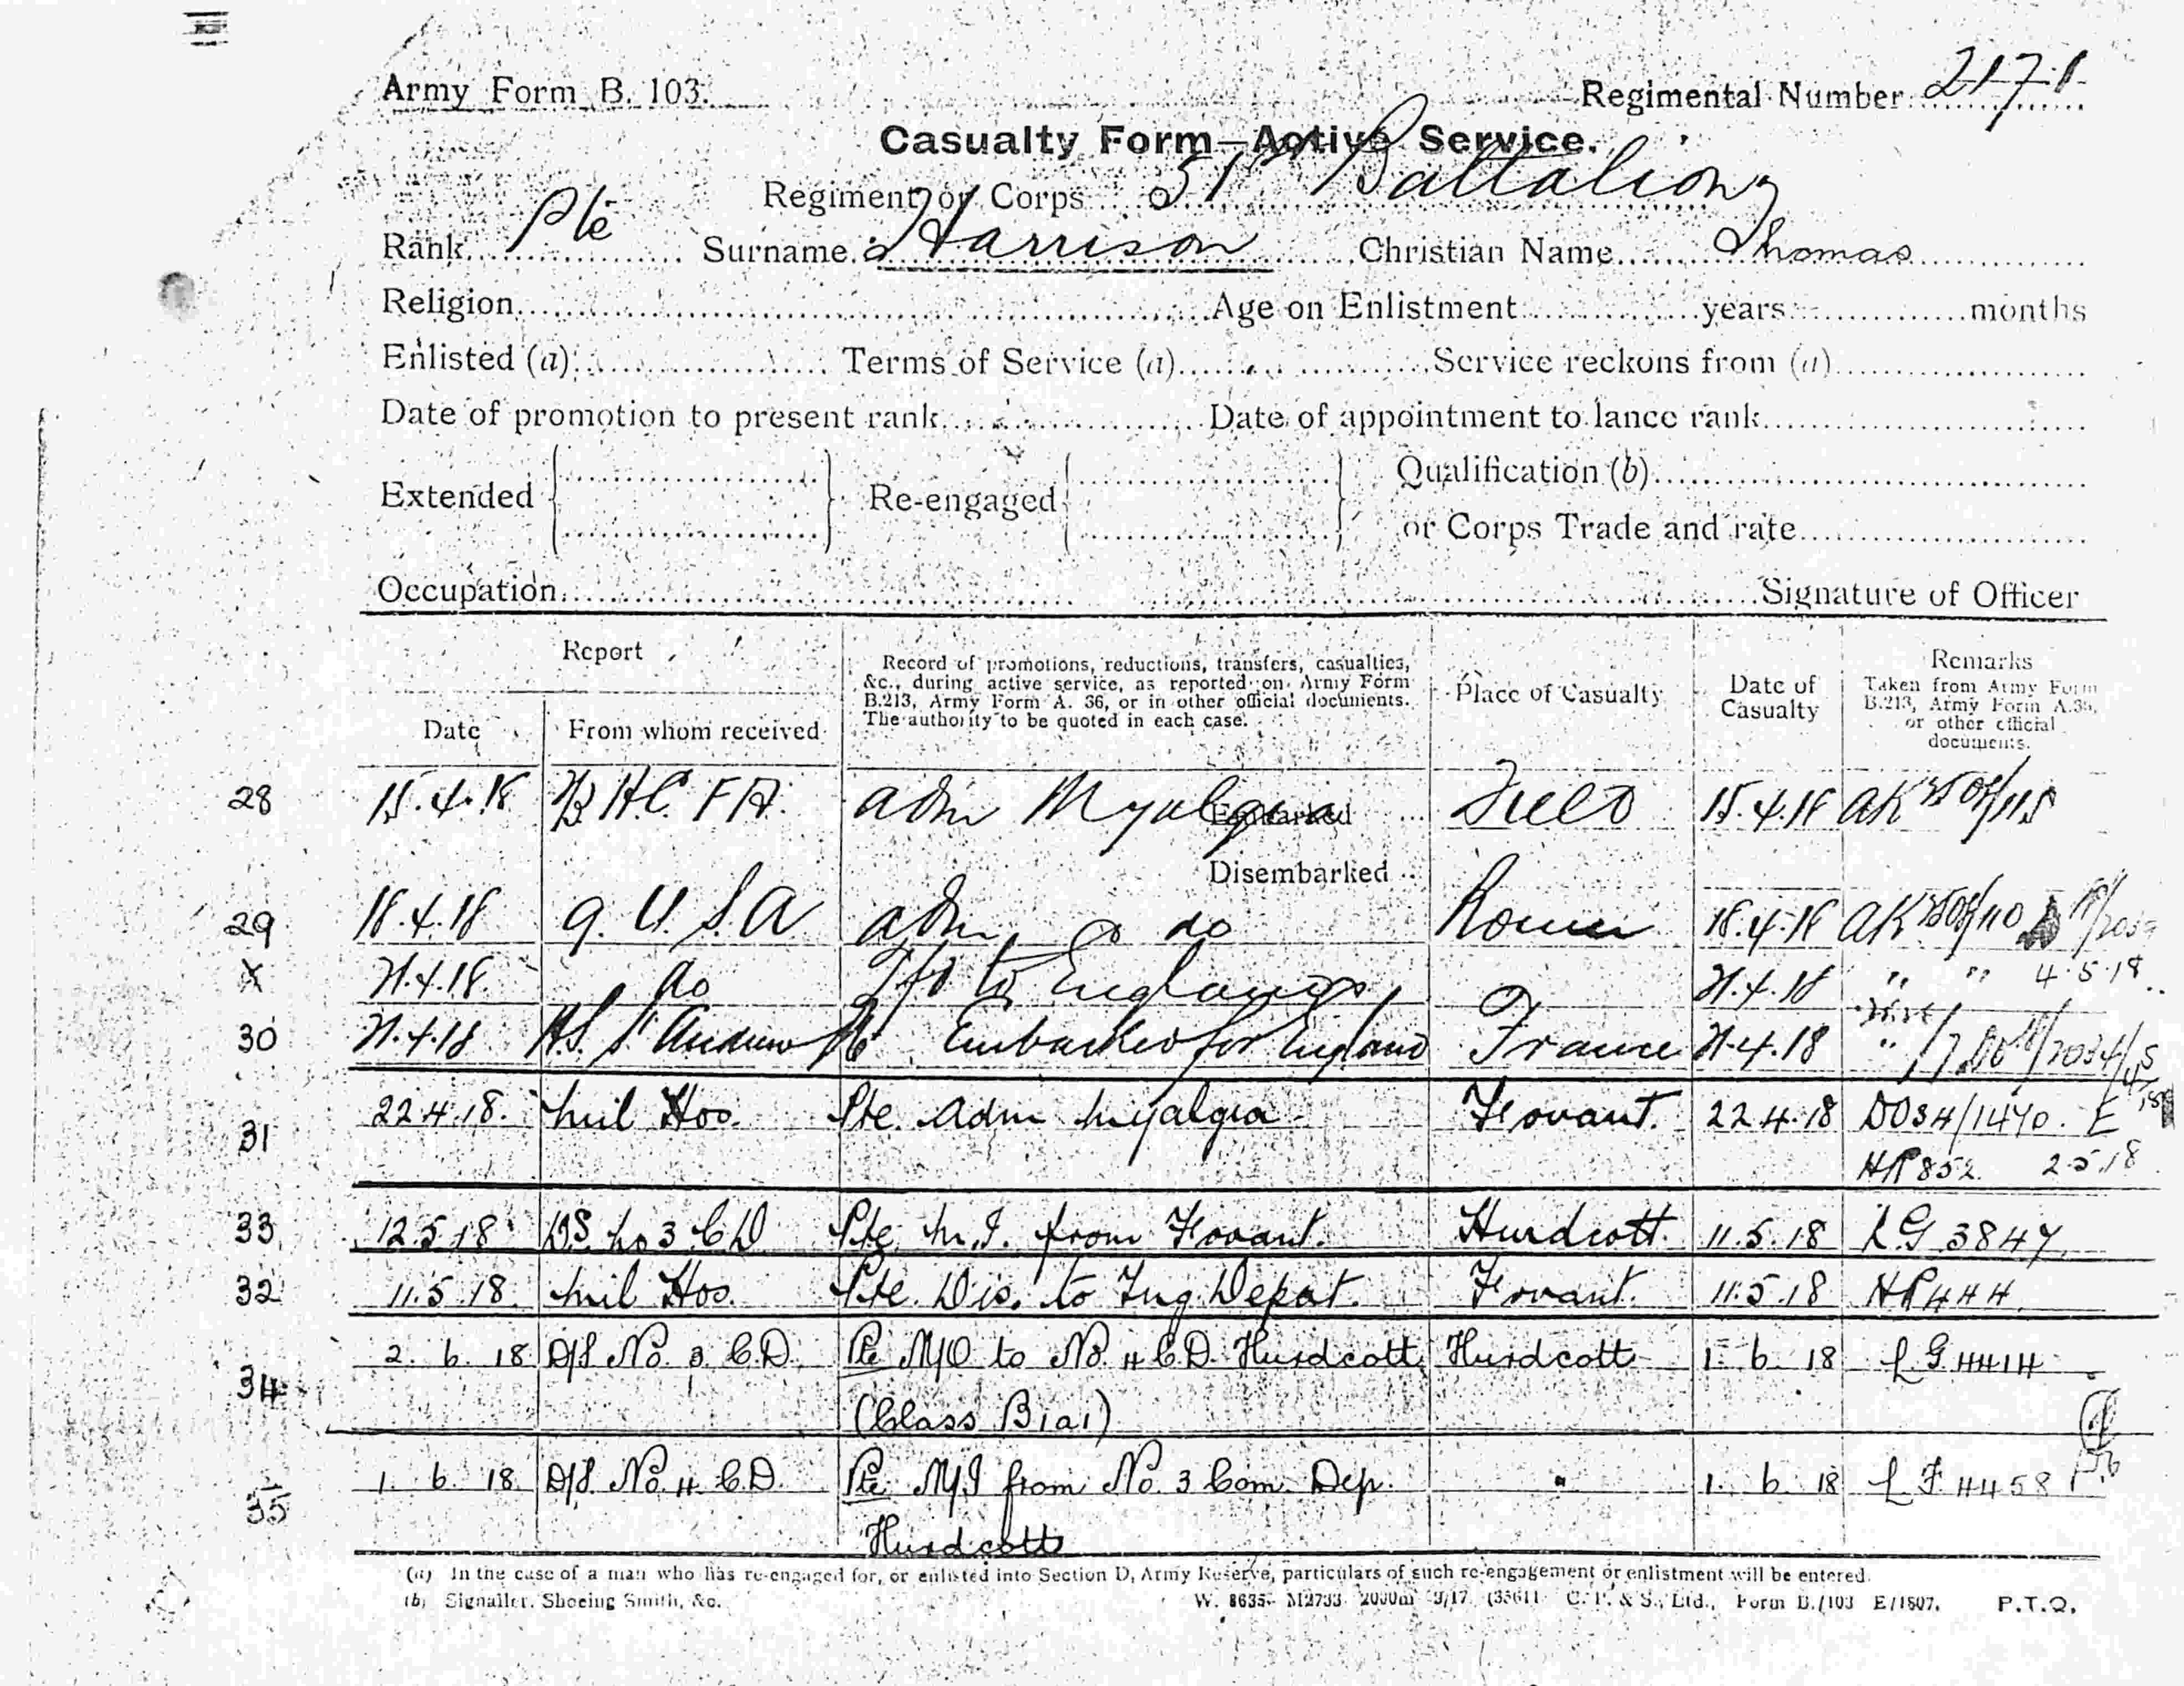 Army Form B. 103.
Regimental Number 2171
Casualty Form—Active Service.
Regiment or Corps 51st Battalion
Rank Pte Surname Harrison Christian Name Thomas
Religion Age on Enlistment years months
Enlisted (a) Terms of Service (a) Service reckons from (a)
Date of promotion to present rank Date of appointment to lance rank
Extended Re-engaged Qualification (b)
or Corps Trade and rate
Occupation Signature of Officer
Report
Date From whom received
Record of promotions, reductions, transfers, casualties,
&c., during active service, as reported on Army Form
B.213, Army Form A. 36, or in other official documents.
The authority to be quoted in each case.
Place of Casualty
Date of
Casualty
Remarks
Taken from Army Form
B.213, Army Form A.36,
or other official
documents.
28 15.4.18 Adm Myalgia Field 15.4.18
Embarked
Disembarked
29 18.4.18 9. U.S.A Adm do Rouen 18.4.18
X 21.4.18 do Tfd to England 21.4.18 " " 4.5.18
30 21.4.18 H.S. St Andrew Pte Embarked for England France 21.4.18
31 22.4.18. Mil Hos. Pte. Adm Myalgia. Fovant. 22.4.18 DO34/1470. E
HP852. 2.5.18
33 12.5.18 D/S. No 3 C D Pte. M.I. from Fovant. Hurdcott. 11.5.18 L.G 3847
32 11.5.18. Mil Hos. Pte. Dis. to Trg. Depot. Fovant. 11.5.18 HP444
34 2. 6. 18 D/S No. 3. C.D. Pte M/O to No. 4 C.D. Hurdcott Hurdcott 1. 6. 18 L.G 4414
(Class B1a1)
35 1. 6. 18. D/S. No. 4. C.D. Pte M/I from No. 3 Com. Dep. " 1. 6. 18 L F 4458
Hurdcott
(a) In the case of a man who has re-engaged for, or enlisted into Section D, Army Reserve, particulars of such re-engagement or enlistment will be entered.
(b) Signaller, Shoeing Smith, &c.
W. 8635. M2733 2000m 9/17 (35611 C. P. & S., Ltd., Form B./103 E/1807. P.T.O.